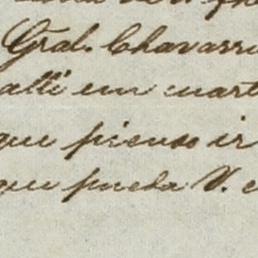 Gral. Chavarri
alli un cuart
que pienso ir
que pueda V. e